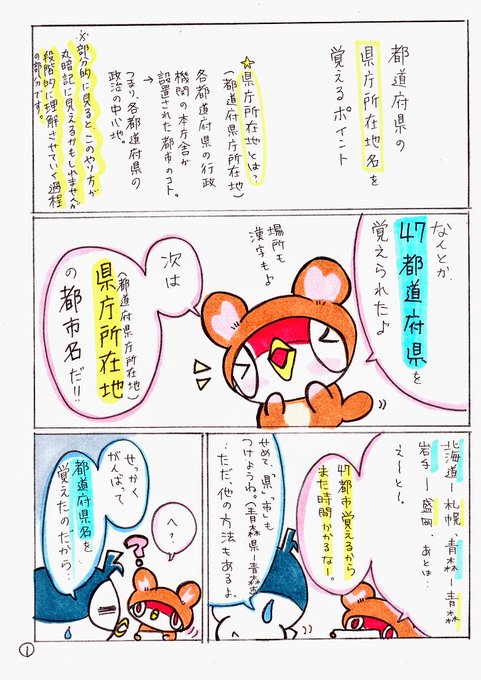 都道府県の
県庁所在地名を
覚えるポイント
☆県庁所在地とは?
(都道府県庁所在地)
各都道府県の行政
機関の本庁舎が
設置された都市のコト。
→
つまり、各都道府県の
政治の中心地。
※部分的に見ると、このやり方が
丸暗記に見えるかもしれませんが
段階的に理解させていく過程
の部分です。
なんとか、
47都道府県を
覚えられたよ
場所も
漢字もよ
次は
(都道府県庁所在地)
県庁所在地
の都市名だ!!
北海道ー札幌、青森ー青森
岩手ー盛岡、あとは…
えーとー、
47都市覚えるから
また時間かかるなー。
せめて、県、市も
つけようね。(青森県ー青森市)
…ただ、他の方法もあるよ。
へ?
?
せっかく
がんばって
都道府県名を
覚えたのだから…
1